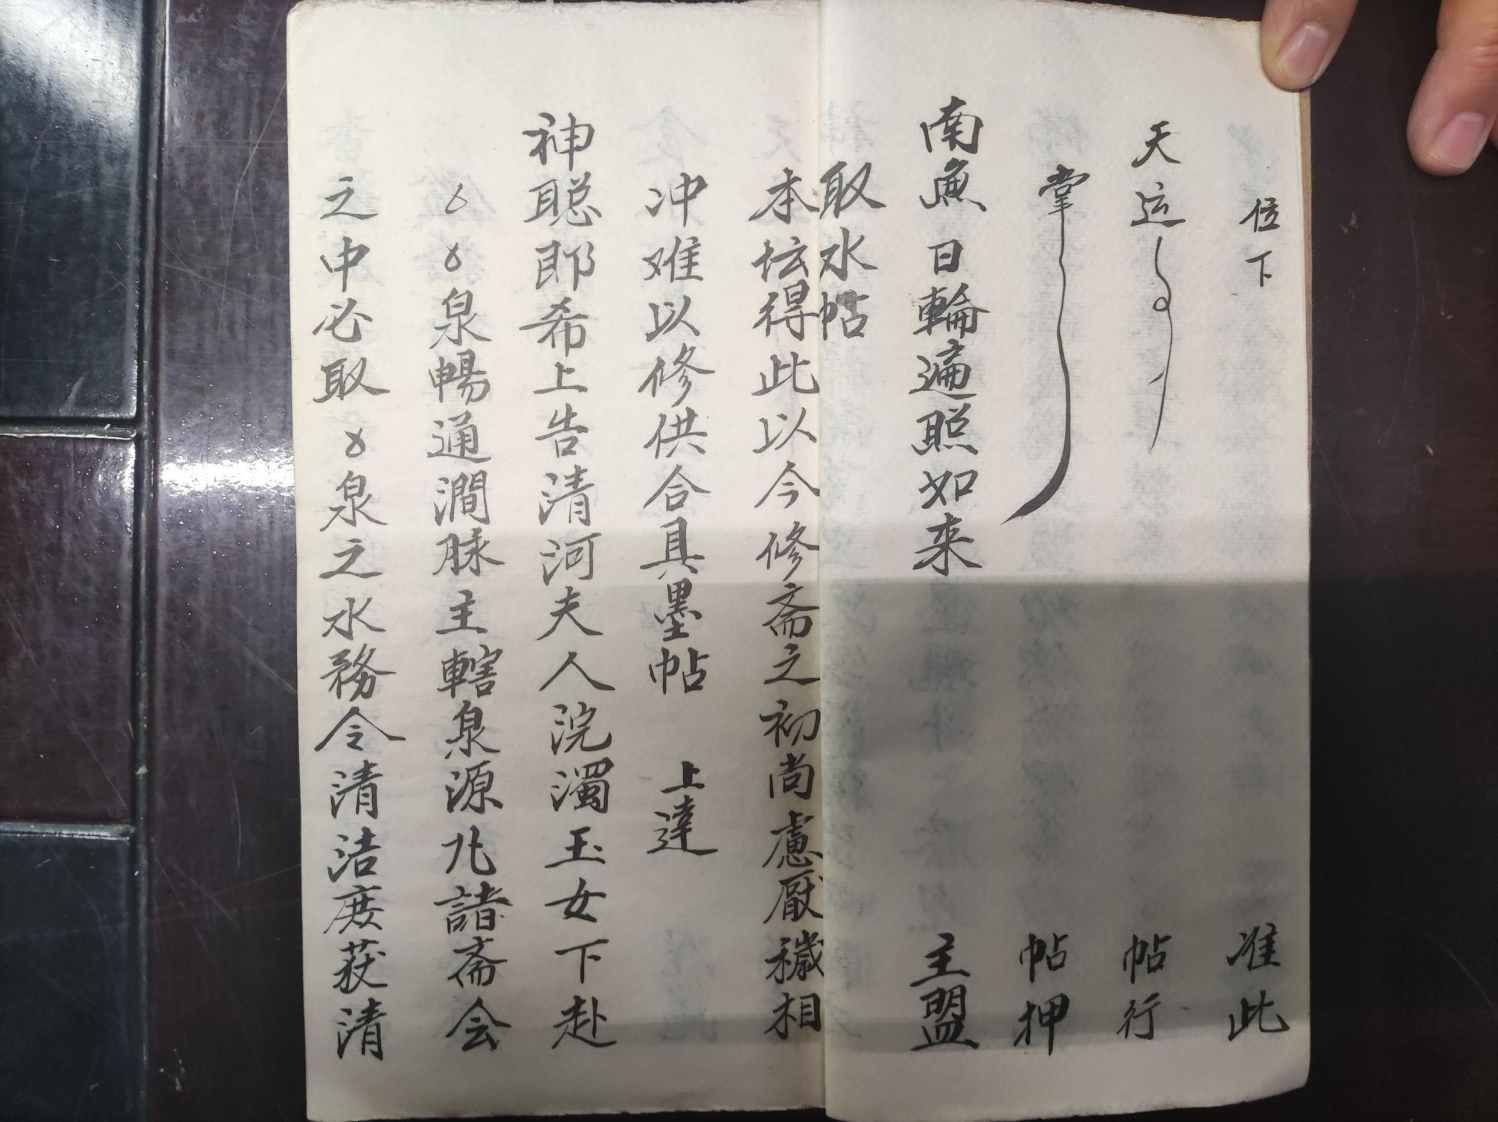 位下 准此
天运 帖行
掌 帖押
南無日輪遍照如来 主盟
取水帖
本坛得此以今修斋之初尚慮厭穢相
冲难以修供合具墨帖 上達
神聪郎希上告清河夫人浣濁玉女下赴
泉暢通澗脉主轄泉源凡諸斋会
之中必取 泉之水務令清洁庻获清